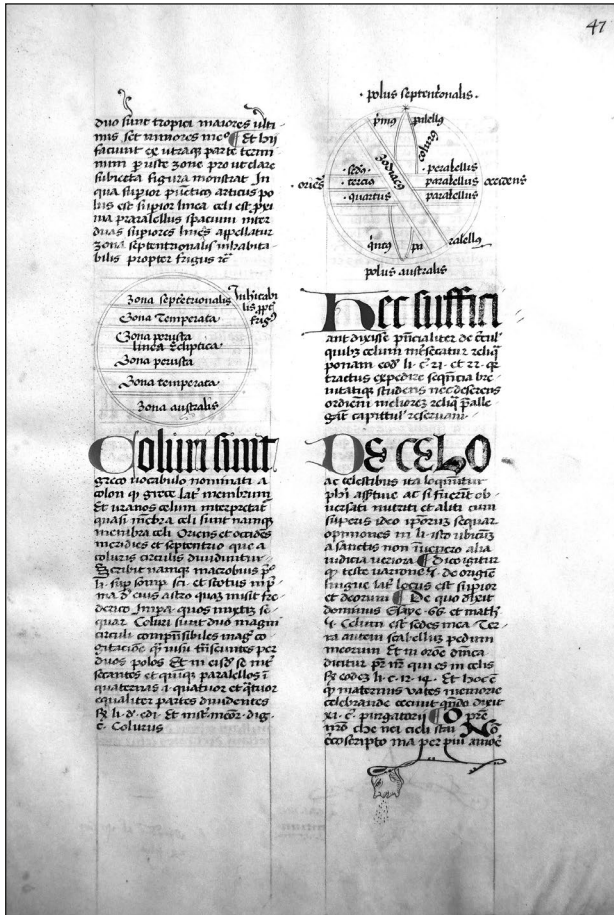 47
duo sunt tropici maiores ulti
mis set minores meº ¶ Et hij
faciunt ex utraqꝫ parte termi
num p̱ uste zone pro ut clare
subiecta figura monstrat In
qua supior pūctus articus po
lus est supior linea celi est pri
ma praralellus spacium inter
duas supiores lineas appellatur
zona septentrionalis inhabita
bilis propter frigus
zona septētrionalis
Inhitabi
lis ppt
frigꝰ
Zona Temperata
Zona perusta
linea Ecliptica
Zona perusta
Zona temperata
zona australis
Coluri sunt
greco uocabulo nominati a
colon qͥ grece latͤ membrum
Et uranos celum interpretatͬ
quasi mēbra celi sunt namqꝫ
membra celi Oriens et occidēs
meridies et septentrio que a
coluris circulis diuiduntur
Scribit namqꝫ macrobius
li sup somp sci et scotus
frede
rico Impa quos mixtis se
quar Coluri sunt duo magni
circuli
duos polos Et
secantes et quiqꝫ parallelos ī
quaternas i quatuor et qͣtuor
equaliter partes diuidentes
Colurus
polus septentrionalis
pͥmus palellꝰ
colurꝰ
zodiacꝰ
sedꝰ perallellus
oriēs tercius parallellus occidens
quartus parallellus
qͥntꝰ pa rallellꝰ
polus australis
Hec suffici
ant dixisse pͥncialiter de
quibꝫ celum
ponam eodͫ li c 21 et 22
tractus expedire seqͤncia bre
uitatiqꝫ studens nec deserens
ordinem meliorem
gant capittulͬ reseruam
DE CELO
ac celestibus ita loqͥntur
phi ac si fuerint ob
uersati nutriti et aliti cum
superis ideo ipoꝝ sequar
opiniones in li isto
a sanctis non alia
iudicia ueriora ¶ Dico igitur
qꝫ teste uarrone de origine
lingue latͤ locus est supior
et deorum ¶ De quo dixit
dominus Esaye 66 et math
5 Celum est sedes mea Ter
ra autem scabellum pedum
meorum Et in orōne dn̄ica
dicitur pr̄ nr̄ qui es in celis
codex li c 12 14 Et hoc ē
qꝫ maternus uates memorie
celebrande cecinit qn̄do dixit
XI c purgatorij ¶ O pre
nrō che nei cieli stai Nō
cōscripto ma per piu amoē